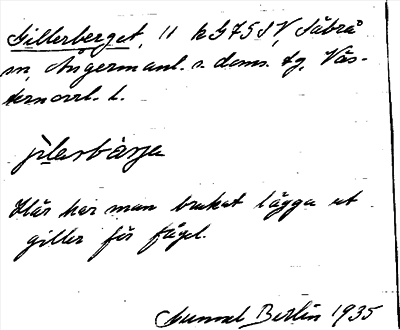 Gillerberget, 11 k G75 SV, Säbrå
sn, Ångermanl. s. doms. tg. Väs-
ternorrl. l.
jilərbàrjə
Här har man brukat lägga ut
giller för fågel.
Gunnel Berlin 1935